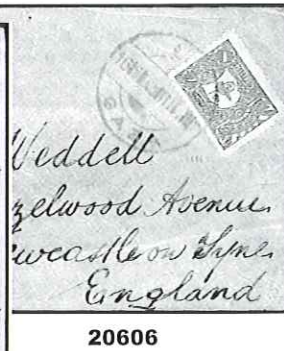 Weddell
zelwood Avenue.
wcastle on Tyne.
England
20606